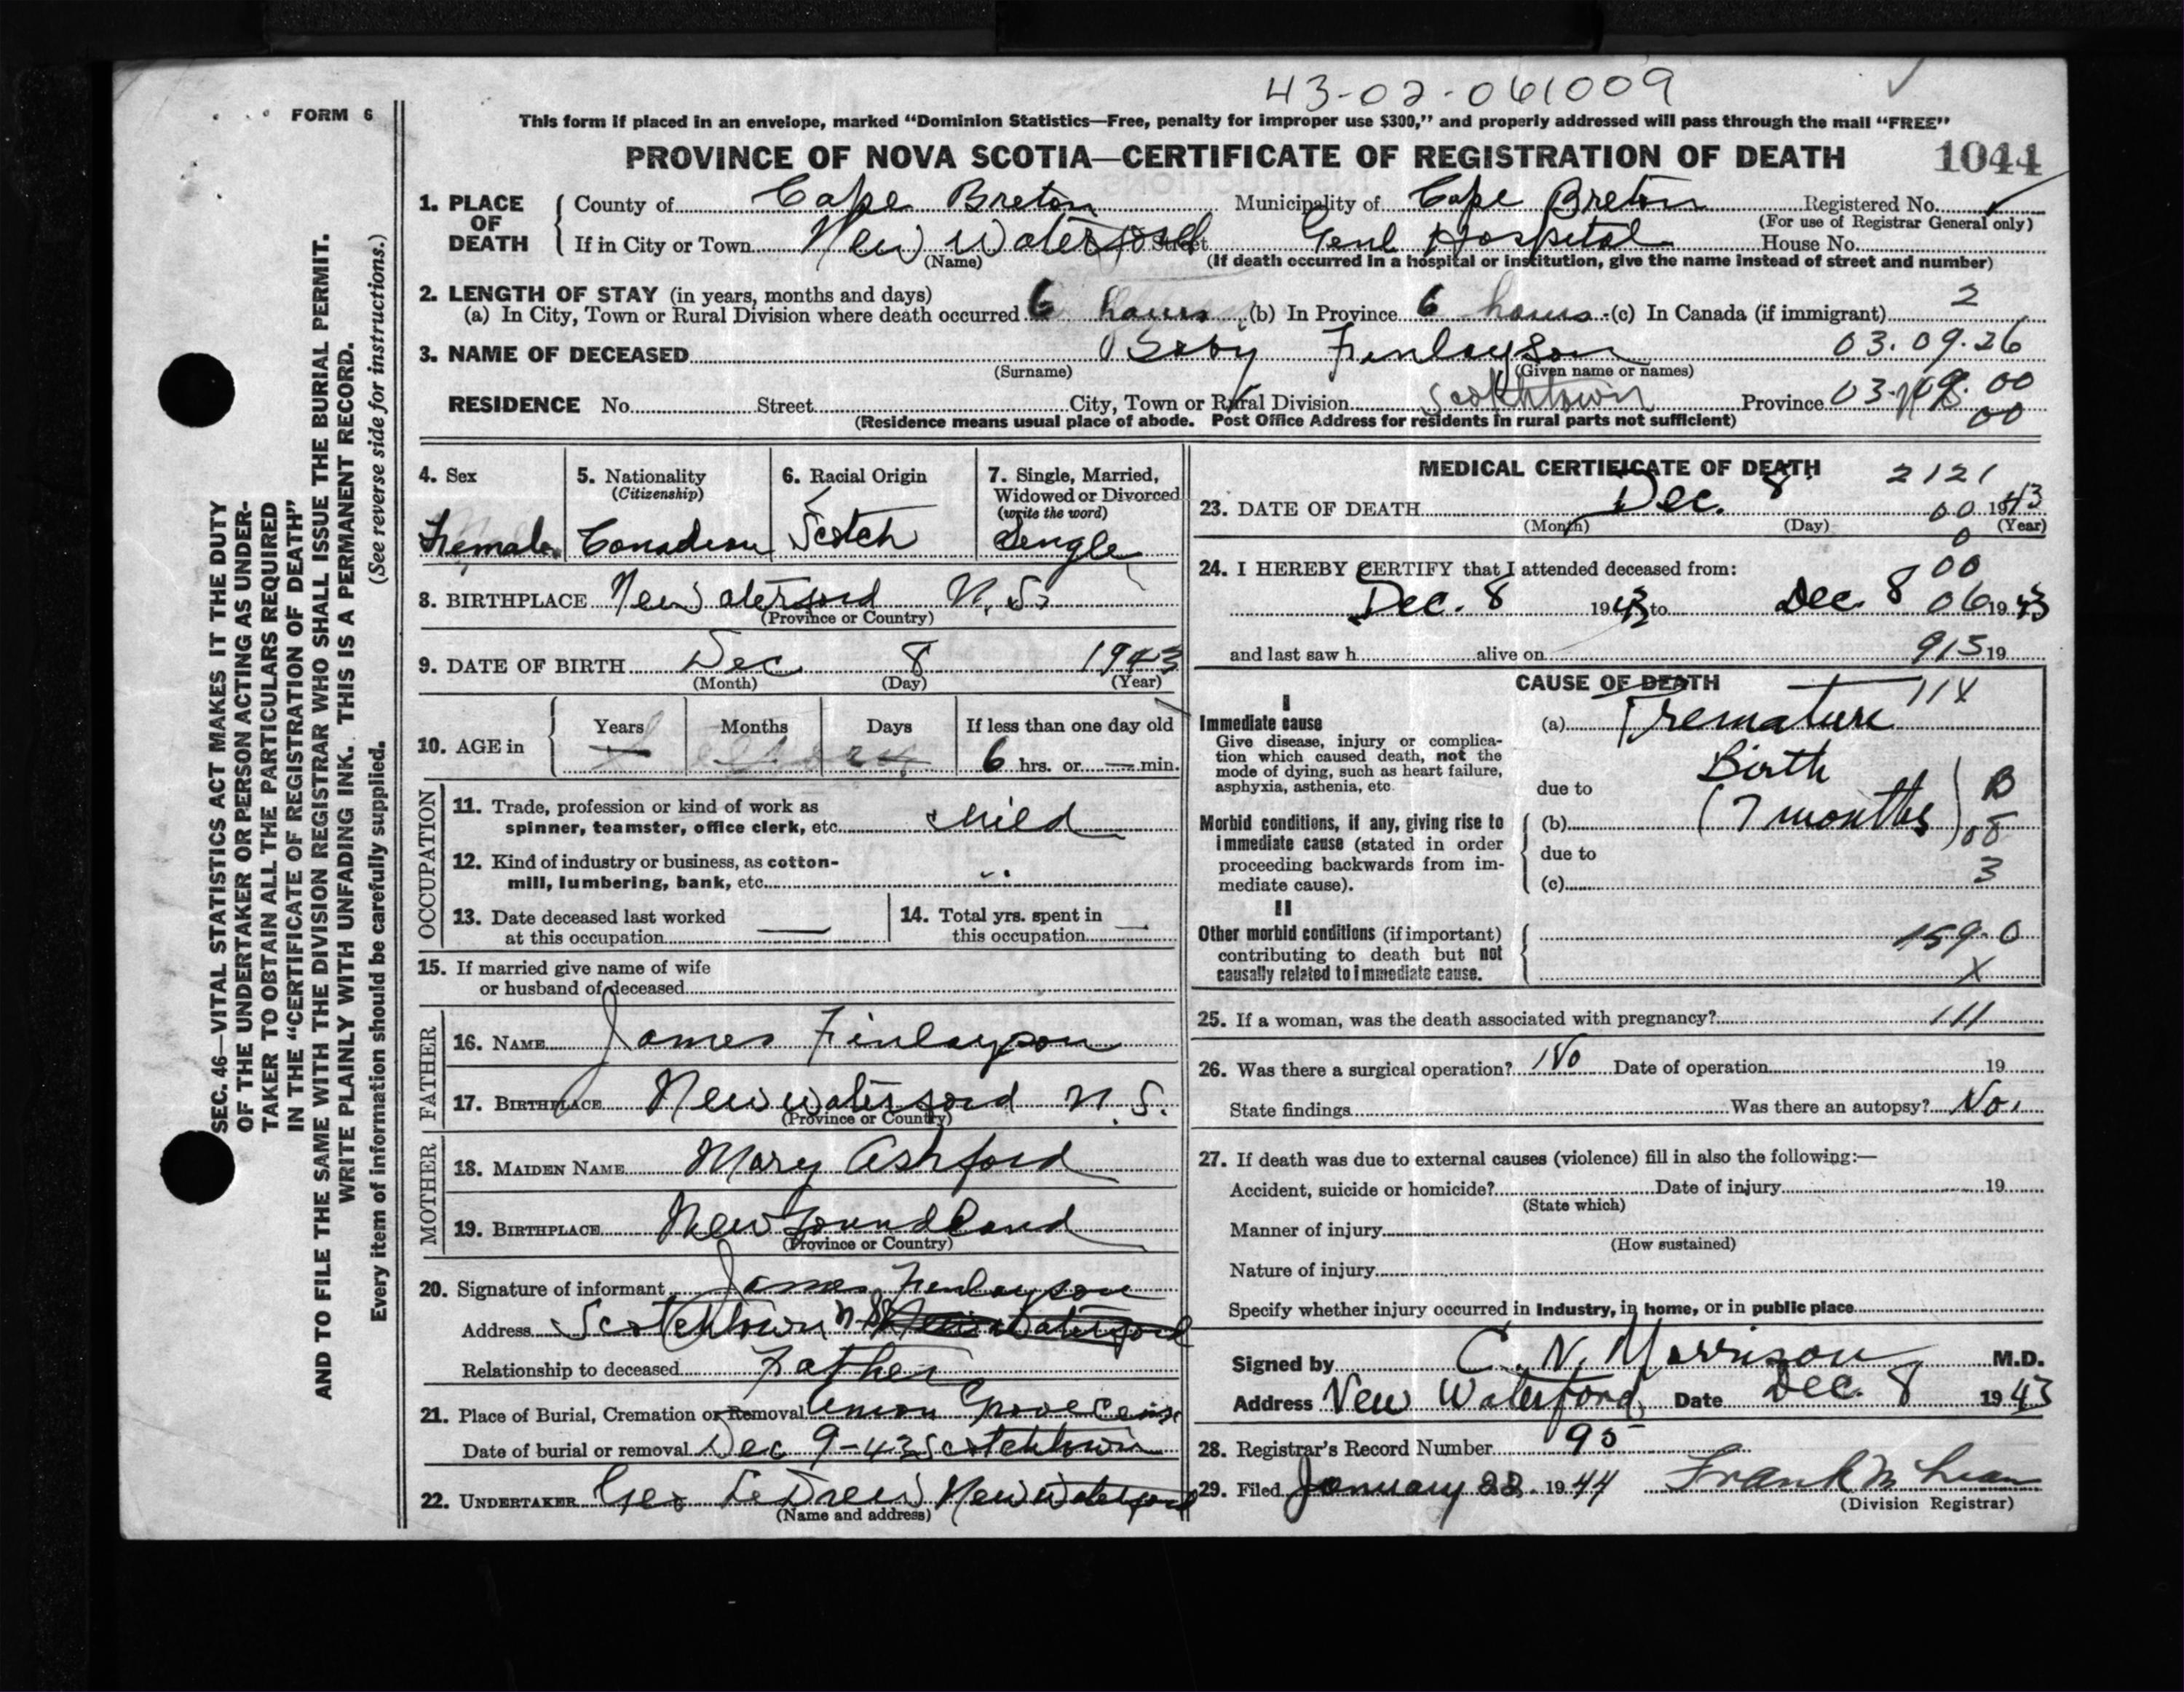 43-02-061009
FORM 6
This form if placed in an envelope, marked "Dominion Statistics—Free, penalty for improper use $300," and properly addressed will pass through the mail "FREE"
PROVINCE OF NOVA SCOTIA—CERTIFICATE OF REGISTRATION OF DEATH 1044
SEC. 46—VITAL STATISTICS ACT MAKES IT THE DUTY
OF THE UNDERTAKER OR PERSON ACTING AS UNDER-
TAKER TO OBTAIN ALL THE PARTICULARS REQUIRED
IN THE "CERTIFICATE OF REGISTRATION OF DEATH"
AND TO FILE THE SAME WITH THE DIVISION REGISTRAR WHO SHALL ISSUE THE BURIAL PERMIT.
WRITE PLAINLY WITH UNFADING INK. THIS IS A PERMANENT RECORD.
Every item of information should be carefully supplied. (See reverse side for instructions.)
1. PLACE OF DEATH
County of Cape Breton Municipality of Cape Breton Registered No.
(For use of Registrar General only)
If in City or Town New Waterford Street Genl Hospital House No.
(Name) (If death occurred in a hospital or institution, give the name instead of street and number)
2. LENGTH OF STAY (in years, months and days)
(a) In City, Town or Rural Division where death occurred 6 hours (b) In Province 6 hours (c) In Canada (if immigrant) 2
3. NAME OF DECEASED Baby Finlayson 03.09.26
(Surname) (Given name or names)
RESIDENCE No. Street City, Town or Rural Division Scotchtown Province N.S. 03-09.00
00
(Residence means usual place of abode. Post Office Address for residents in rural parts not sufficient)
4. Sex
Female
5. Nationality
(Citizenship)
Canadian
6. Racial Origin
Scotch
7. Single, Married,
Widowed or Divorced
(write the word)
Single
8. BIRTHPLACE New Waterford N.S.
(Province or Country)
9. DATE OF BIRTH Dec 8 1943
(Month) (Day) (Year)
10. AGE in Years Months Days If less than one day old
6 hrs. or — min.
OCCUPATION
11. Trade, profession or kind of work as
spinner, teamster, office clerk, etc. child
12. Kind of industry or business, as cotton-
mill, lumbering, bank, etc. "
13. Date deceased last worked
at this occupation —
14. Total yrs. spent in
this occupation —
15. If married give name of wife
or husband of deceased
FATHER
16. NAME James Finlayson
17. BIRTHPLACE New Waterford N.S.
(Province or Country)
MOTHER
18. MAIDEN NAME Mary Ashford
19. BIRTHPLACE Newfoundland
(Province or Country)
20. Signature of informant James Finlayson
Address Scotchtown N.S. New Waterford
Relationship to deceased Father
21. Place of Burial, Cremation or Removal Union Grove Cem
Date of burial or removal Dec 9-43 Scotchtown
22. UNDERTAKER Geo LeDrew New Waterford
(Name and address)
MEDICAL CERTIFICATE OF DEATH 2121
23. DATE OF DEATH Dec. 8 00 1943
(Month) (Day) (Year)
0
24. I HEREBY CERTIFY that I attended deceased from: 00
Dec. 8 1943 to Dec. 8 06 1943
and last saw h alive on 915 19
CAUSE OF DEATH 11X
I
Immediate cause
Give disease, injury or complica-
tion which caused death, not the
mode of dying, such as heart failure,
asphyxia, asthenia, etc.
(a) Premature
Birth
due to
Morbid conditions, if any, giving rise to
immediate cause (stated in order
proceeding backwards from im-
mediate cause).
(b) (7 months) B
08
due to
(c) 3
II
Other morbid conditions (if important)
contributing to death but not
causally related to immediate cause.
159.0
X
25. If a woman, was the death associated with pregnancy? 111
26. Was there a surgical operation? No Date of operation 19
State findings Was there an autopsy? No.
27. If death was due to external causes (violence) fill in also the following:—
Accident, suicide or homicide? Date of injury 19
(State which)
Manner of injury
(How sustained)
Nature of injury
Specify whether injury occurred in industry, in home, or in public place
Signed by C. N. Morrison M.D.
Address New Waterford Date Dec. 8 1943
28. Registrar's Record Number 95
29. Filed January 22 1944 Frank McLean
(Division Registrar)